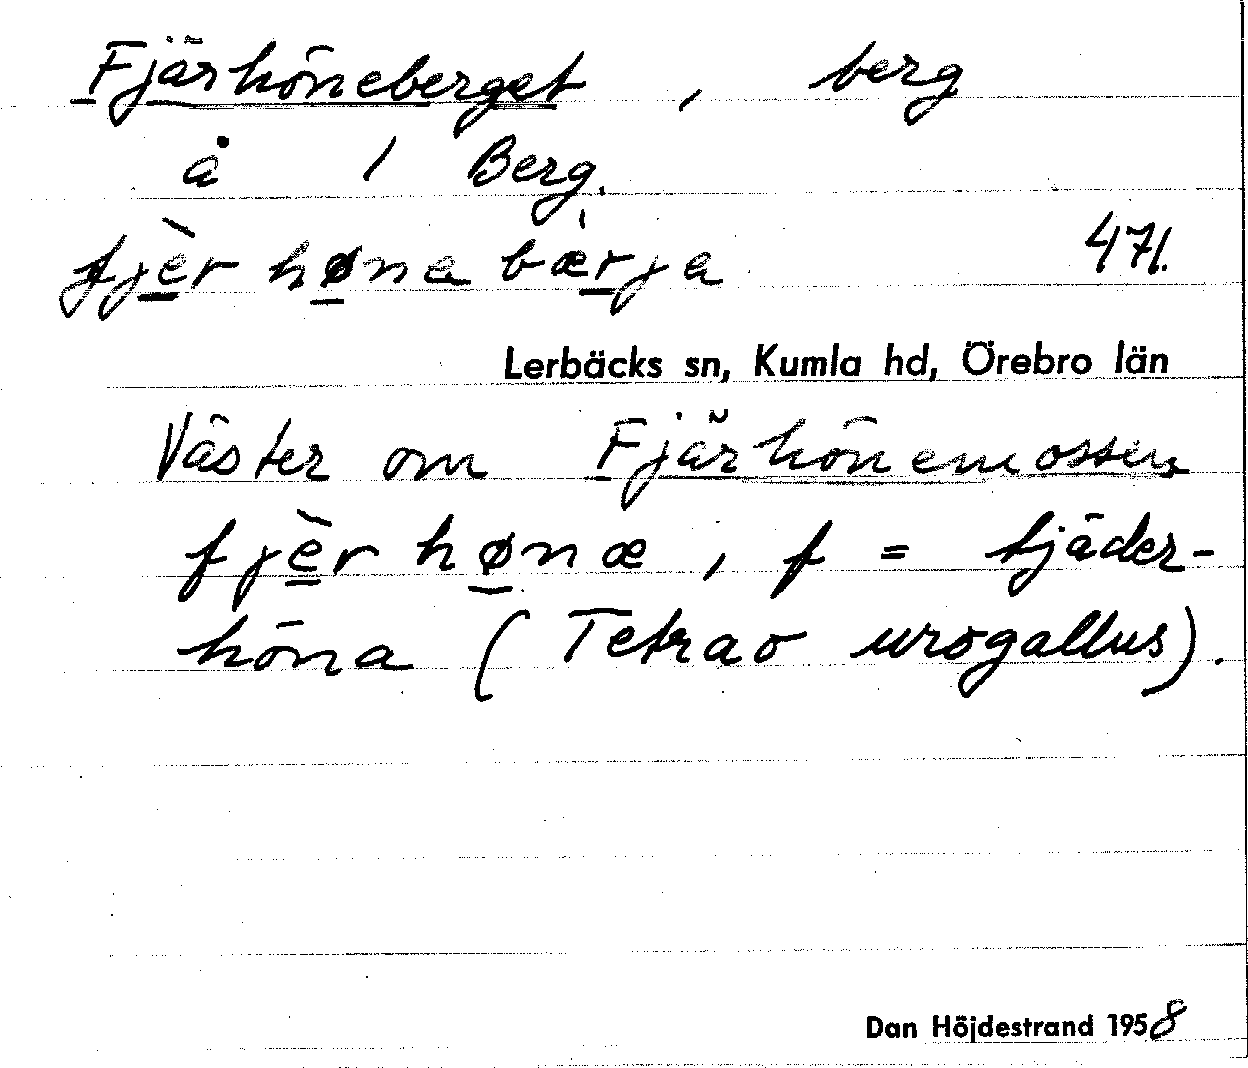 Fjärhöneberget, berg
å 1 Berg.
fjèr høna bærja 471.
Lerbäcks sn, Kumla hd, Örebro län
Väster om Fjärhönemossen
fjèr hønæ, f = fjäder-
höna (Tetrao urogallus).
Dan Höjdestrand 1958